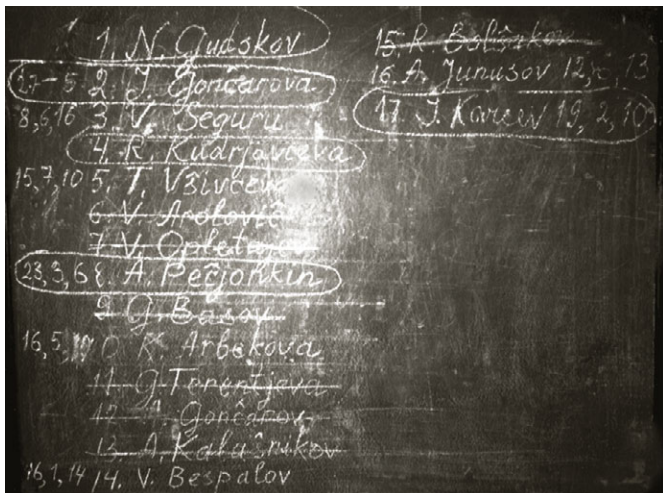 1. N. Gudskov
27-5 2. I. Gončarova
8,6,16 3. V. Seguru
4. R. Kudrjavceva
15,7,10 5. T. Všivceva
6. V. Arolovič
7. V. Opletajev
23,3,6 8. A. Pečjonkin
9. G. Basov
16,5, 0 K. Arbekova
11 G. Terentjava
12 Gončarov
13 A. Kalašnikov
16,1,14 14. V. Bespalov
15. R. Bolšakov
16. A. Junusov 12, 13
17. I. Karcev 19, 2, 10